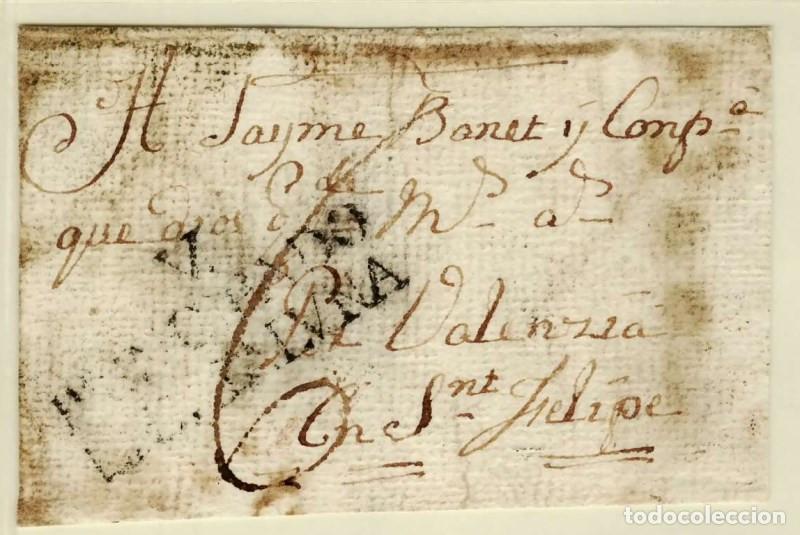 A Jayme Bonet y Compª
que Dios gde Ms as
Pr Valenzia
En Snt Felipe
todocoleccion